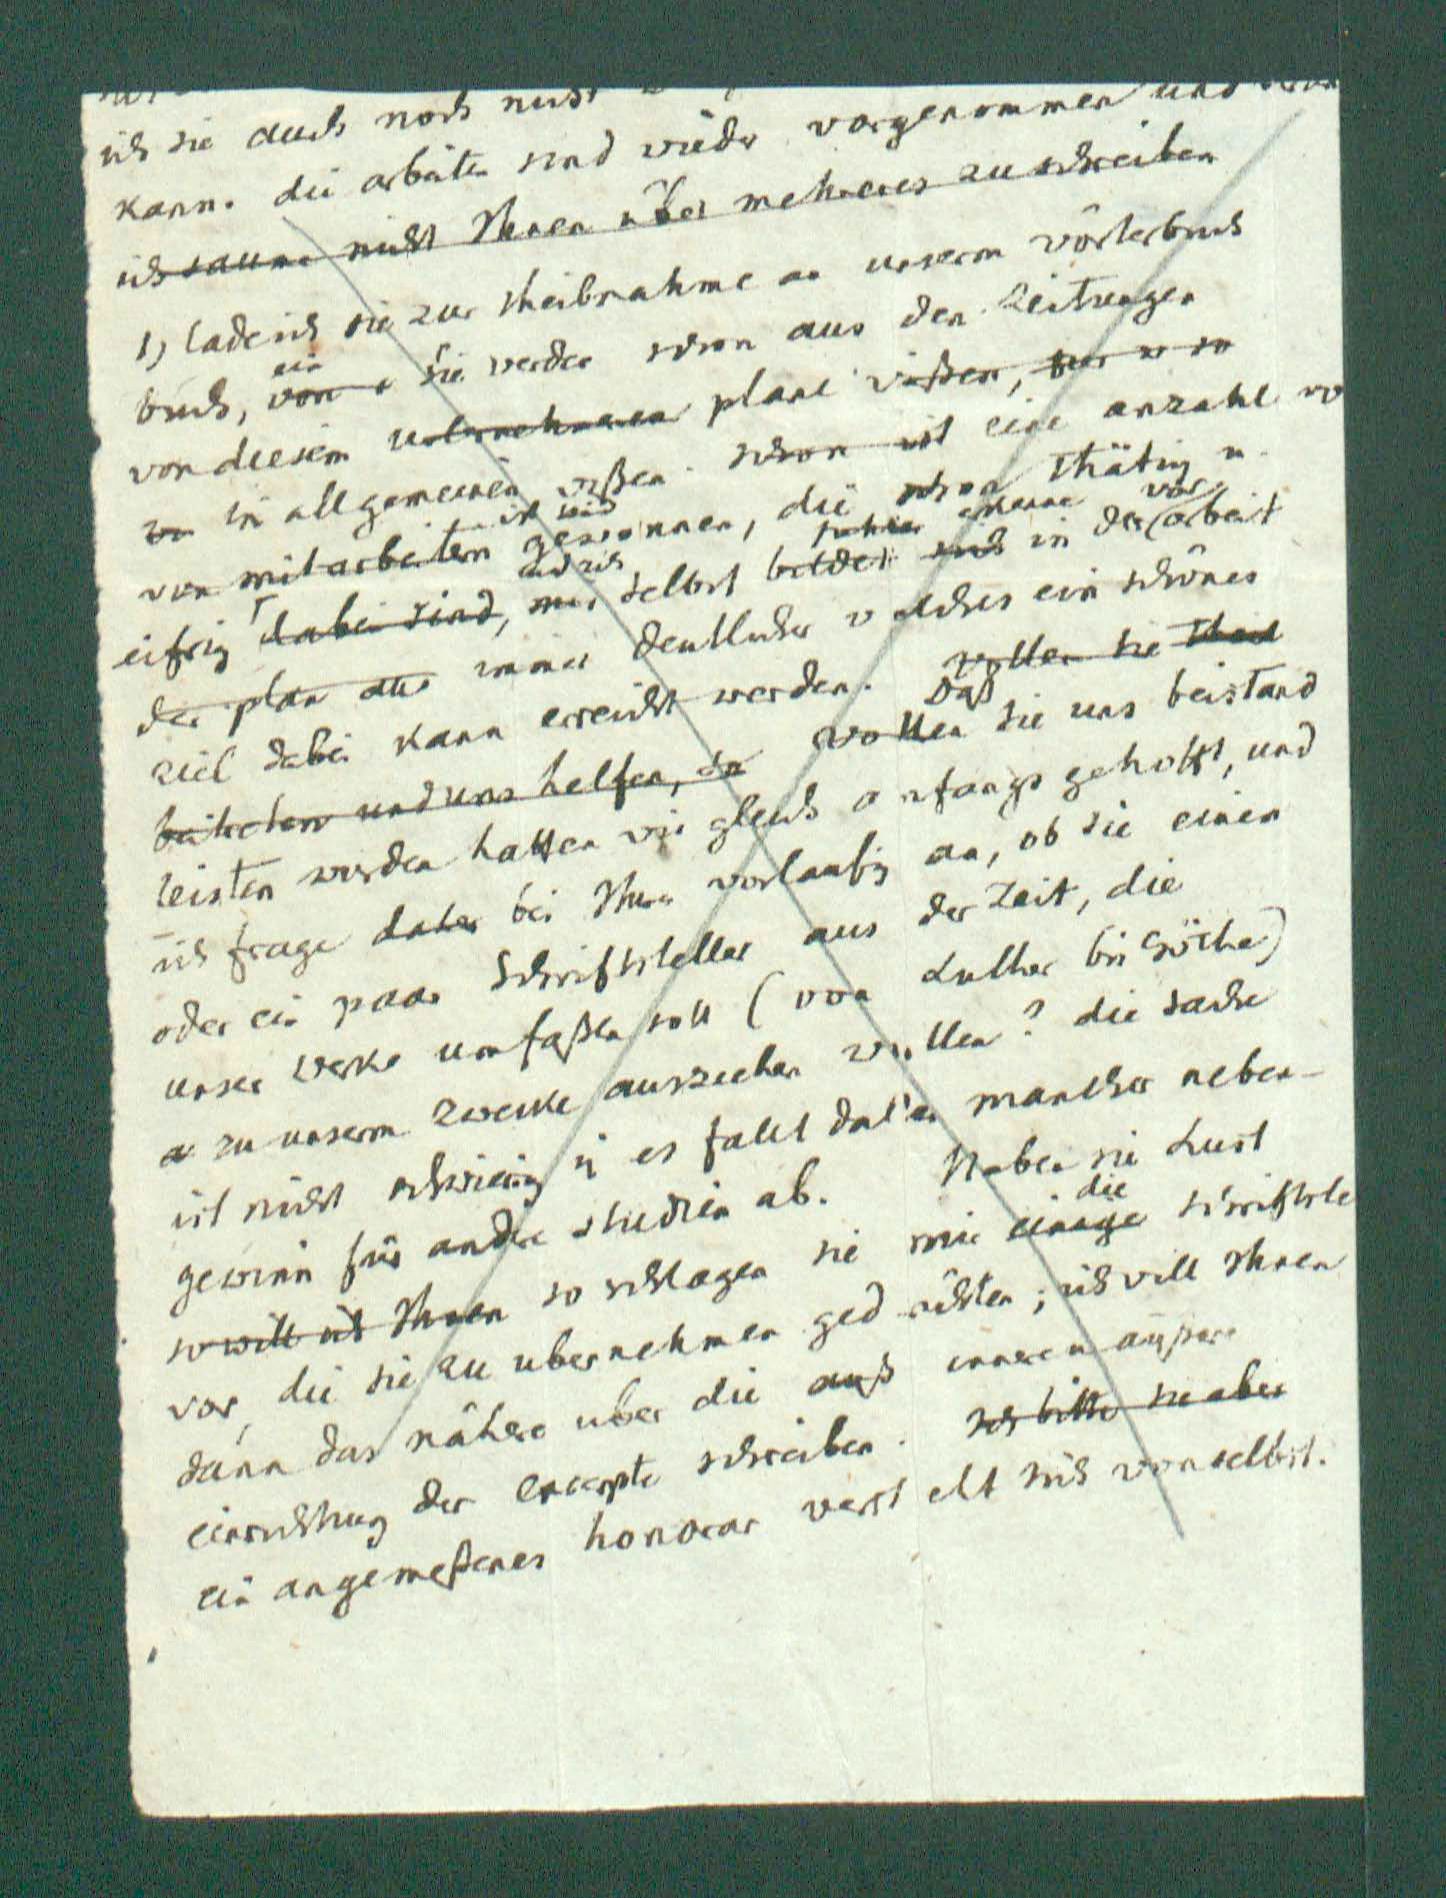 ich sie auch noch nicht
kann. die arbeiten sind wieder vorgenommen und
ich säume nicht Ihnen über mehreres zu schreiben
1) lade ich sie zur theilnahme an unserm wörterbuch
buch, ein von Sie werden schon aus den Zeitungen
von diesem unternehmen plane wißen, nur so
im allgemeinen wißen. schon ist eine anzahl vo
von mitarbeitern ist gewonnen, die schon thätig u.
eifrig dabei sind, und ich mir selbst bildet sich erkenne in der vorarbeit
der plan aus immer deutlicher welches ein schönes
ziel dabei kann erreicht werden. wollen sie theil
beitreten und uns helfen, da Daß wollen sie uns beistand
leisten werden hatten wir gleich anfangs gehofft, und
ich frage daher bei Ihnen vorläufig an, ob sie einen
oder ein paar Schriftsteller aus der Zeit, die
unser Werk umfaßen soll (von Luther bis Göthe)
zu unserm zwecke ausziehen wollen? die sache
ist nicht schwierig u es fällt dabei mancher neben-
gewinn für andere studien ab. Haben sie Lust
so will ich Ihnen so schlagen sie mir einige die schriftste
vor, die sie zu übernehmen gedächten; ich will Ihnen
dann das nähere über die auß innere u äußere
einrichtung der excerpte schreiben. Ich bitte sie aber
ein angemeßenes honorar versteht sich von selbst.